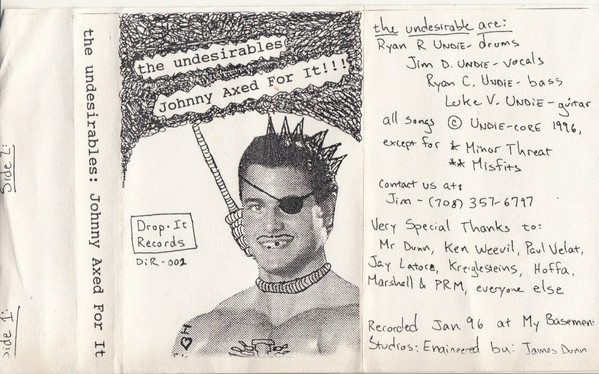 Side 2:
Side 1:
the undesirables: Johnny Axed For It
the undesirables
Johnny Axed For It!!!
Drop·It
Records
DiR-001
H
the undesirable are:
Ryan R UNDiE - drums
Jim D. UNDiE - vocals
Ryan C. UNDiE - bass
Luke V. UNDiE - guitar
all songs © UNDiE-CORE 1996,
except for * Minor Threat
** Misfits
Contact us at:
Jim - (708) 357-6797
Very Special Thanks to:
Mr Dunn, Ken Weevil, Paul Velat,
Jay Latore, Kreiglesteins, Hoffa,
Marshall & PRM, everyone else
Recorded Jan 96 at My Basement
Studios: Engineered by: James Dunn